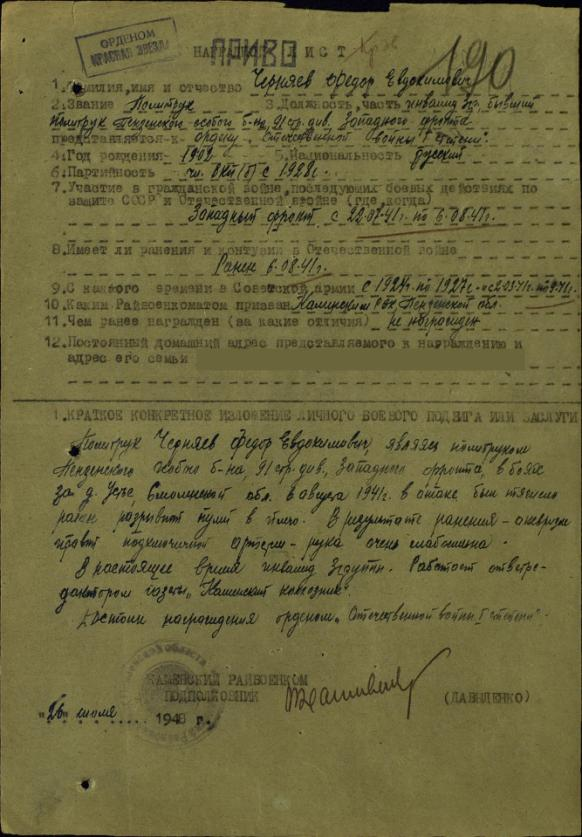 ОРДЕНОМ
КРАСНАЯ ЗВЕЗДА
НАГРАДНОЙ ЛИСТ
ПРИВО
190
1. Фамилия, имя и отчество Черняев Федор Евдокимович
2. Звание Политрук 3. Должность, часть инвалид Зр, бывший
политрук Пензенского особого б-на, 91 стр. див. Западного фронта
представляется к ордену "Отечественной войны I степени".
4. Год рождения - 5. Национальность русский
6. Партийность чл. ВКП(б) с 1928г.
7. Участие в гражданской войне, последующих боевых действиях по
защите СССР и Отечественной войне (где, когда)
Западный фронт с 41г. по 6.08.41г.
8. Имеет ли ранения и контузии в Отечественной войне
Ранен 6.08.41г.
9. С какого времени в Советской армии с 1924г. по 1927г.
10. Каким Райвоенкоматом призван Каменским РВК Пензенской обл.
11. Чем ранее награжден (за какие отличия) не награжден
12. Постоянный домашний адрес представляемого к награждению и
адрес его семьи
1. КРАТКОЕ КОНКРЕТНОЕ ИЗЛОЖЕНИЕ ЛИЧНОГО БОЕВОГО ПОДВИГА ИЛИ ЗАСЛУГИ
Политрук Черняев Федор Евдокимович, являясь политруком
Пензенского особого б-на, 91 стр. див., Западного фронта, в боях
за д. Смоленской обл. 6 августа 1941г. в атаке был тяжело
ранен разрывной пулей в плечо. В результате ранения - аневризм
правой подключичной артерии - рука очень слаба.
В настоящее время инвалид 3 группы. Работает ответ. ре-
дактором газеты "Каменский колхозник".
Достоин награждения орденом "Отечественной войны I степени".
КАМЕНСКИЙ РАЙВОЕНКОМ
ПОДПОЛКОВНИК
(ДАВЫДЕНКО)
"26" июля 1948 г.